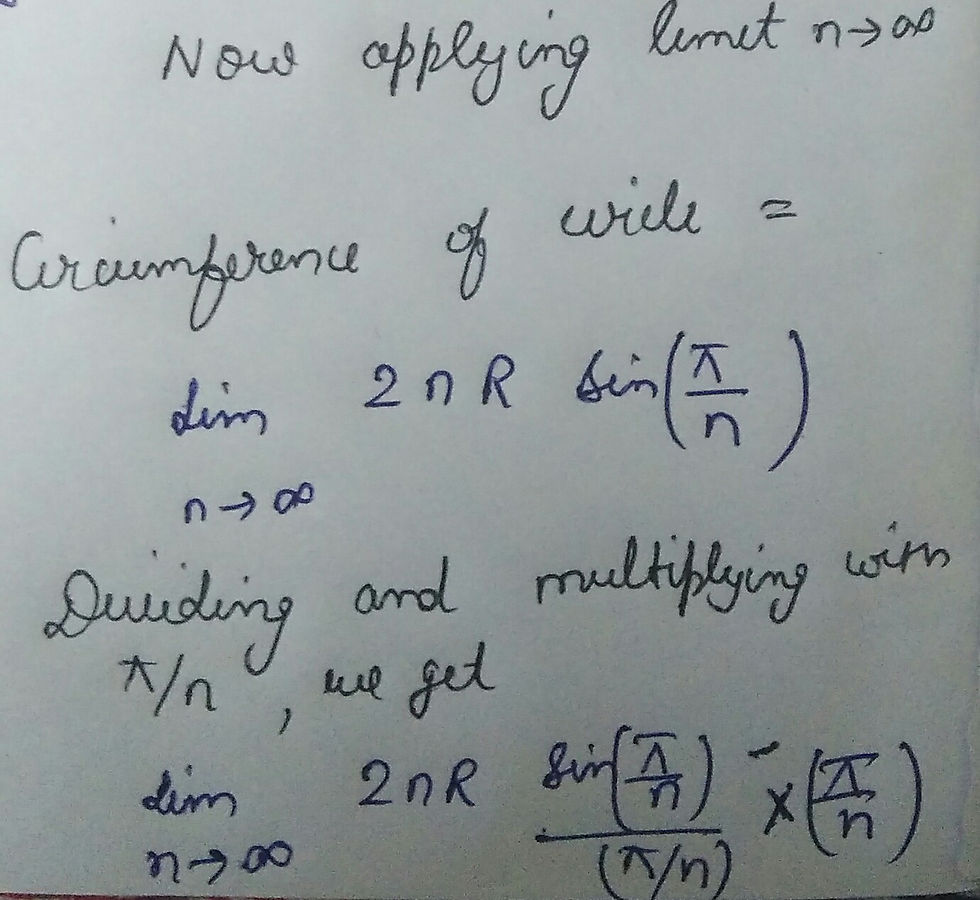 Now applying limit n→∞
Circumference of circle =
lim 2nR sin(π/n)
n→∞
Dividing and multiplying with
π/n, we get
lim 2nR sin(π/n)/(π/n) × (π/n)
n→∞